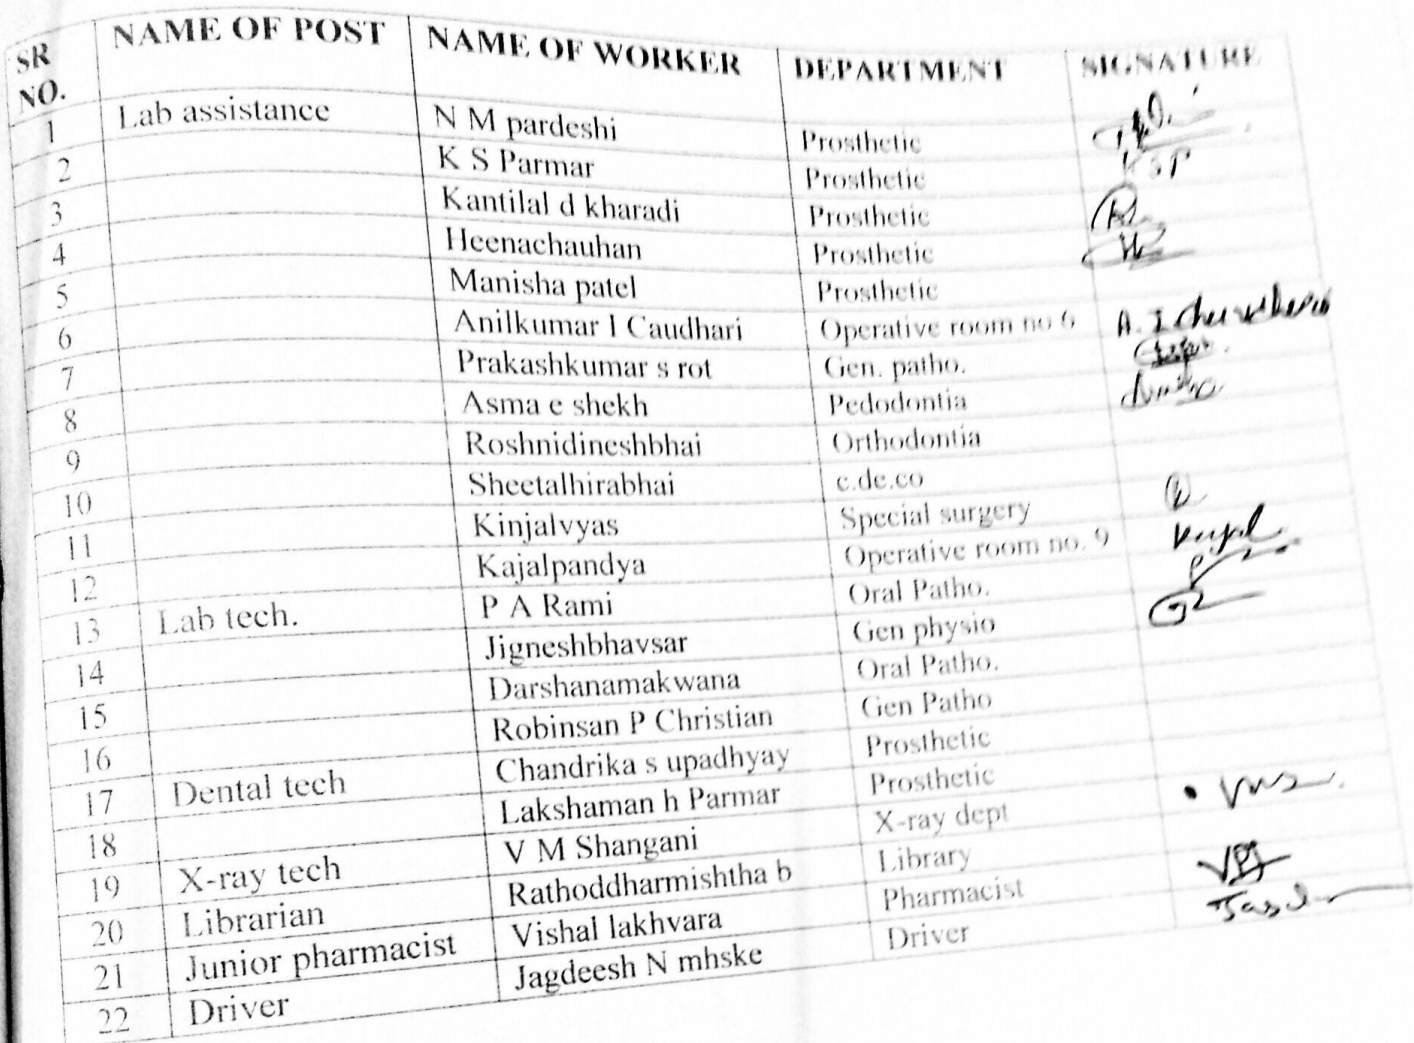 SR NO. NAME OF POST NAME OF WORKER DEPARTMENT SIGNATURE
1 Lab assistance N M pardeshi Prosthetic
2 K S Parmar Prosthetic KSP
3 Kantilal d kharadi Prosthetic
4 Heenachauhan Prosthetic
5 Manisha patel Prosthetic
6 Anilkumar I Caudhari Operative room no 6
7 Prakashkumar s rot Gen. patho.
8 Asma e shekh Pedodontia
9 Roshnidineshbhai Orthodontia
10 Sheetalhirabhai c.de.co
11 Kinjalvyas Special surgery
12 Kajalpandya Operative room no. 9
13 Lab tech. P A Rami Oral Patho.
14 Jigneshbhavsar Gen physio
15 Darshanamakwana Oral Patho.
16 Robinsan P Christian Gen Patho
17 Dental tech Chandrika s upadhyay Prosthetic
18 Lakshaman h Parmar Prosthetic
19 X-ray tech V M Shangani X-ray dept
20 Librarian Rathoddharmishtha b Library
21 Junior pharmacist Vishal lakhvara Pharmacist
22 Driver Jagdeesh N mhske Driver